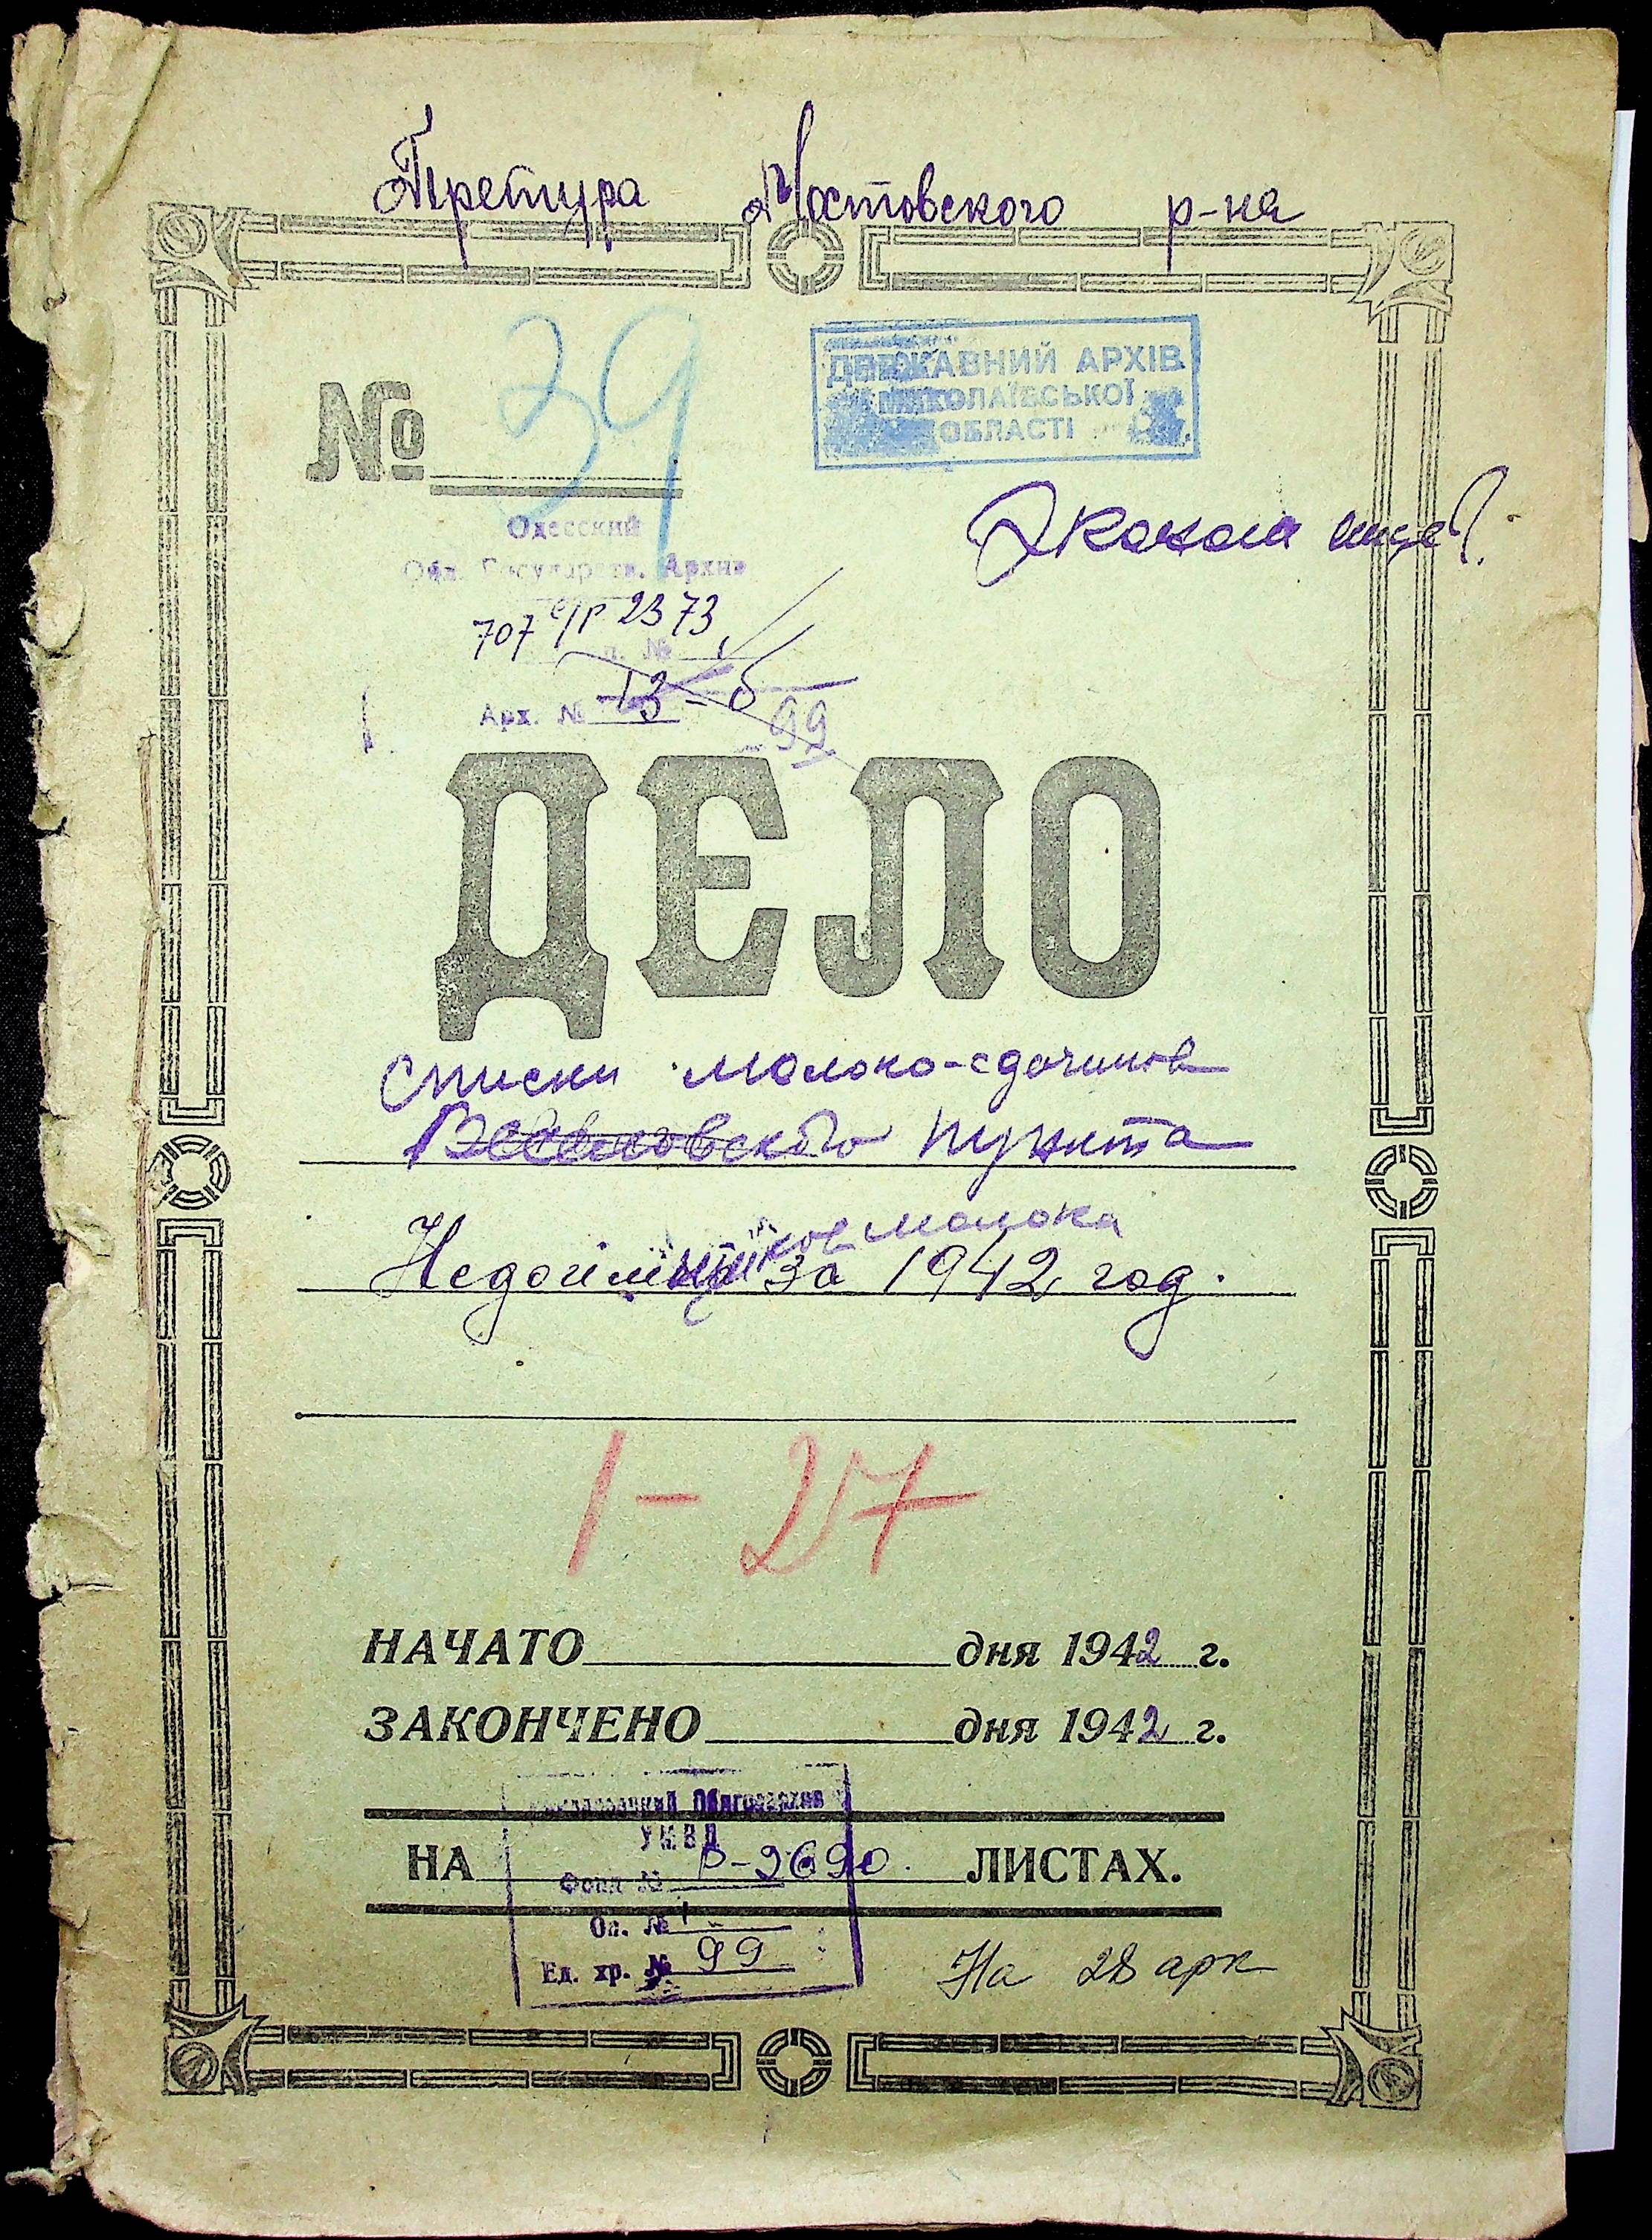 Претура Мостовского р-на
№ 39
ДЕРЖАВНИЙ АРХІВ
МИКОЛАЇВСЬКОЇ
ОБЛАСТІ
Одесский
Обл. Государств. Архив
707 2373
Арх. № 13-б
99
ДЕЛО
Списки молоко-сдатчиков
пункта
молока
за 1942 год.
1-27
НАЧАТО дня 1942 г.
ЗАКОНЧЕНО дня 1942 г.
Облгосархив
УМВД
НА ЛИСТАХ.
Фонд № Р-2690
Оп. № 1
Ед. хр. № 99
На 28 арк